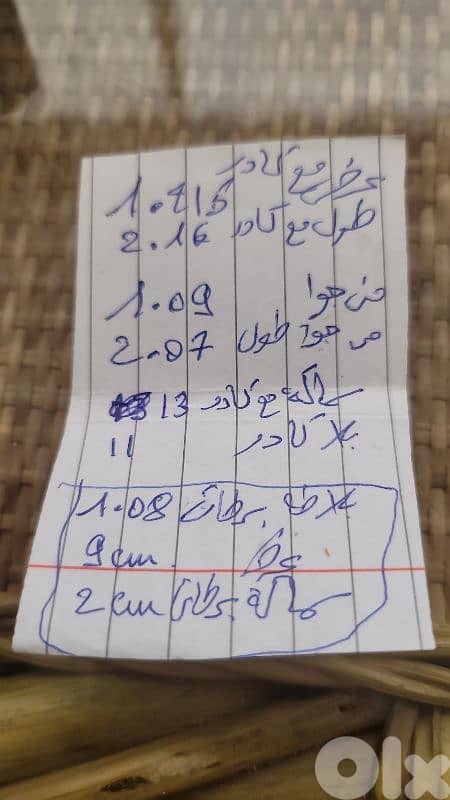 عرض مع كادر 1.215
طول مع كادر 2.16
من جوا 1.09
من جوا طول 2.07
سماكة مع كادر 13
بلا كادر 11
بلاطة برطاش 1.08
عرض 9 cm
سماكة برطاش 2 cm
OLX